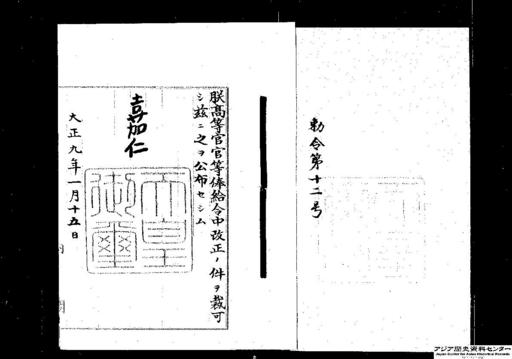 勅令第十二号
朕高等官官等俸給令中改正ノ件ヲ裁可
シ茲ニ之ヲ公布セシム
嘉仁
天皇御璽
大正九年一月十五日
アジア歴史資料センター
Japan Center for Asian Historical Records